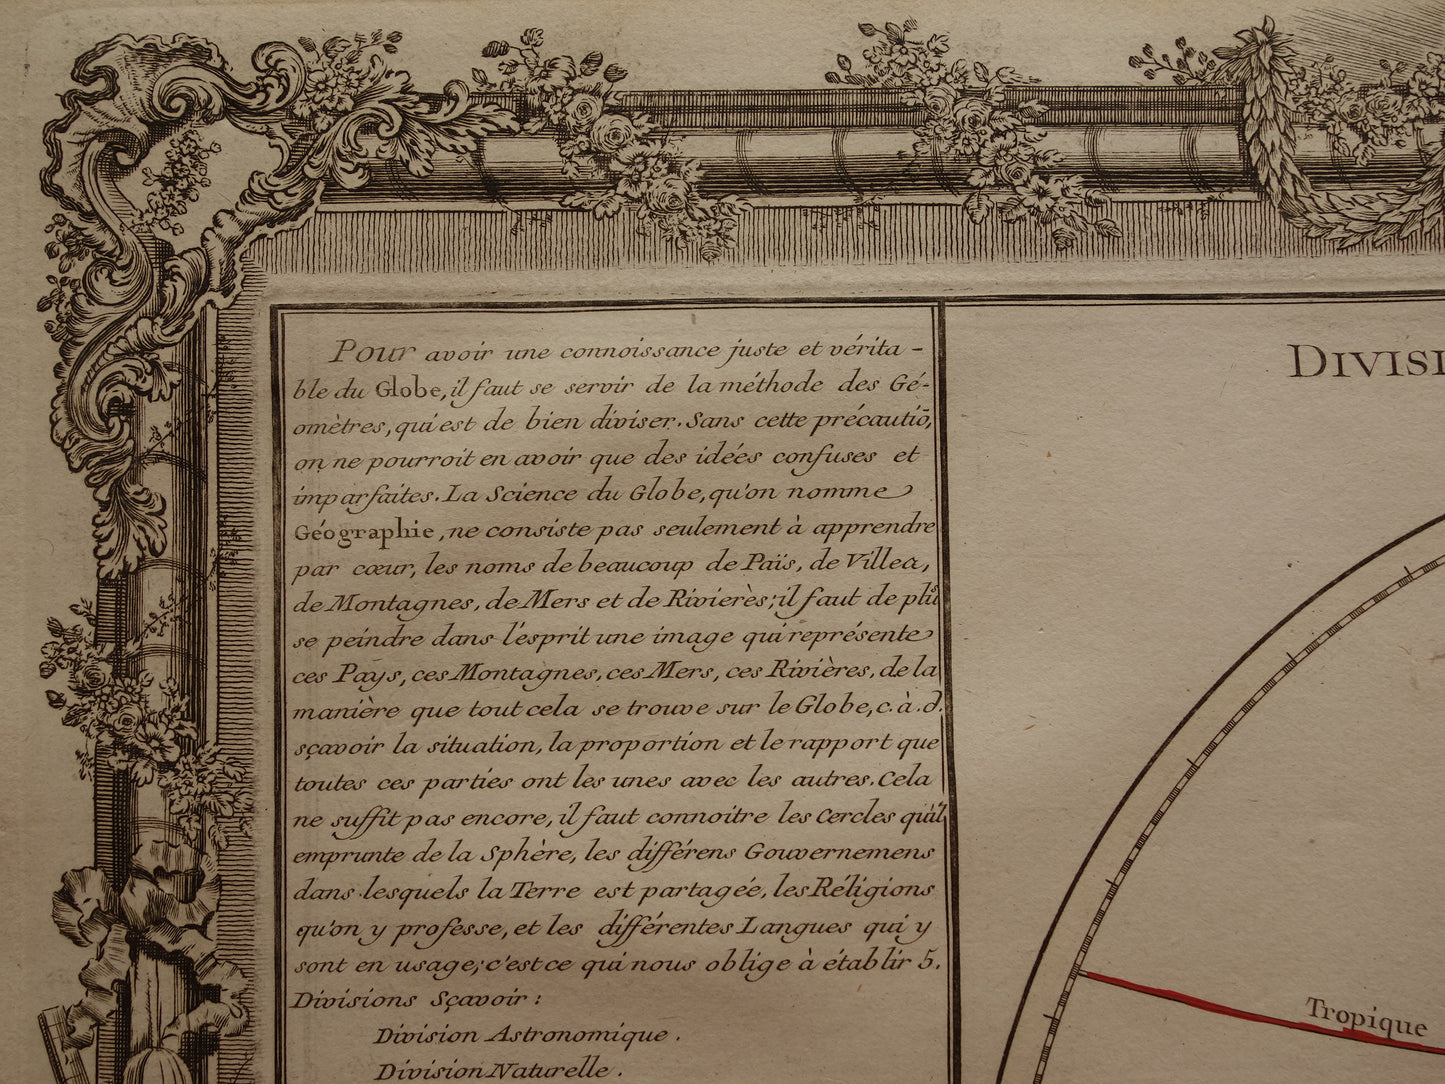 Pour avoir une connoissance juste et vérita-
ble du Globe, il faut se servir de la méthode des Gé-
omètres, qui est de bien diviser. Sans cette précautiō,
on ne pourroit en avoir que des idées confuses et
imparfaites. La Science du Globe, qu'on nomme
Géographie, ne consiste pas seulement à apprendre
par cœur, les noms de beaucoup de Païs, de Villes,
de Montagnes, de Mers et de Rivierès; il faut de plus
se peindre dans l'esprit une image qui représente
ces Pays, ces Montagnes, ces Mers, ces Rivières, de la
manière que tout cela se trouve sur le Globe, c. à. d.
sçavoir la situation, la proportion et le rapport que
toutes ces parties ont les unes avec les autres. Cela
ne suffit pas encore, il faut connoitre les Cercles qu'il
emprunte de la Sphère, les différens Gouvernemens
dans lesquels la Terre est partagée, les Réligions
qu'on y professe, et les différentes Langues qui y
sont en usage; c'est ce qui nous oblige à établir 5.
Divisions Sçavoir:
Division Astronomique.
Division Naturelle.
DIVISI
Tropique